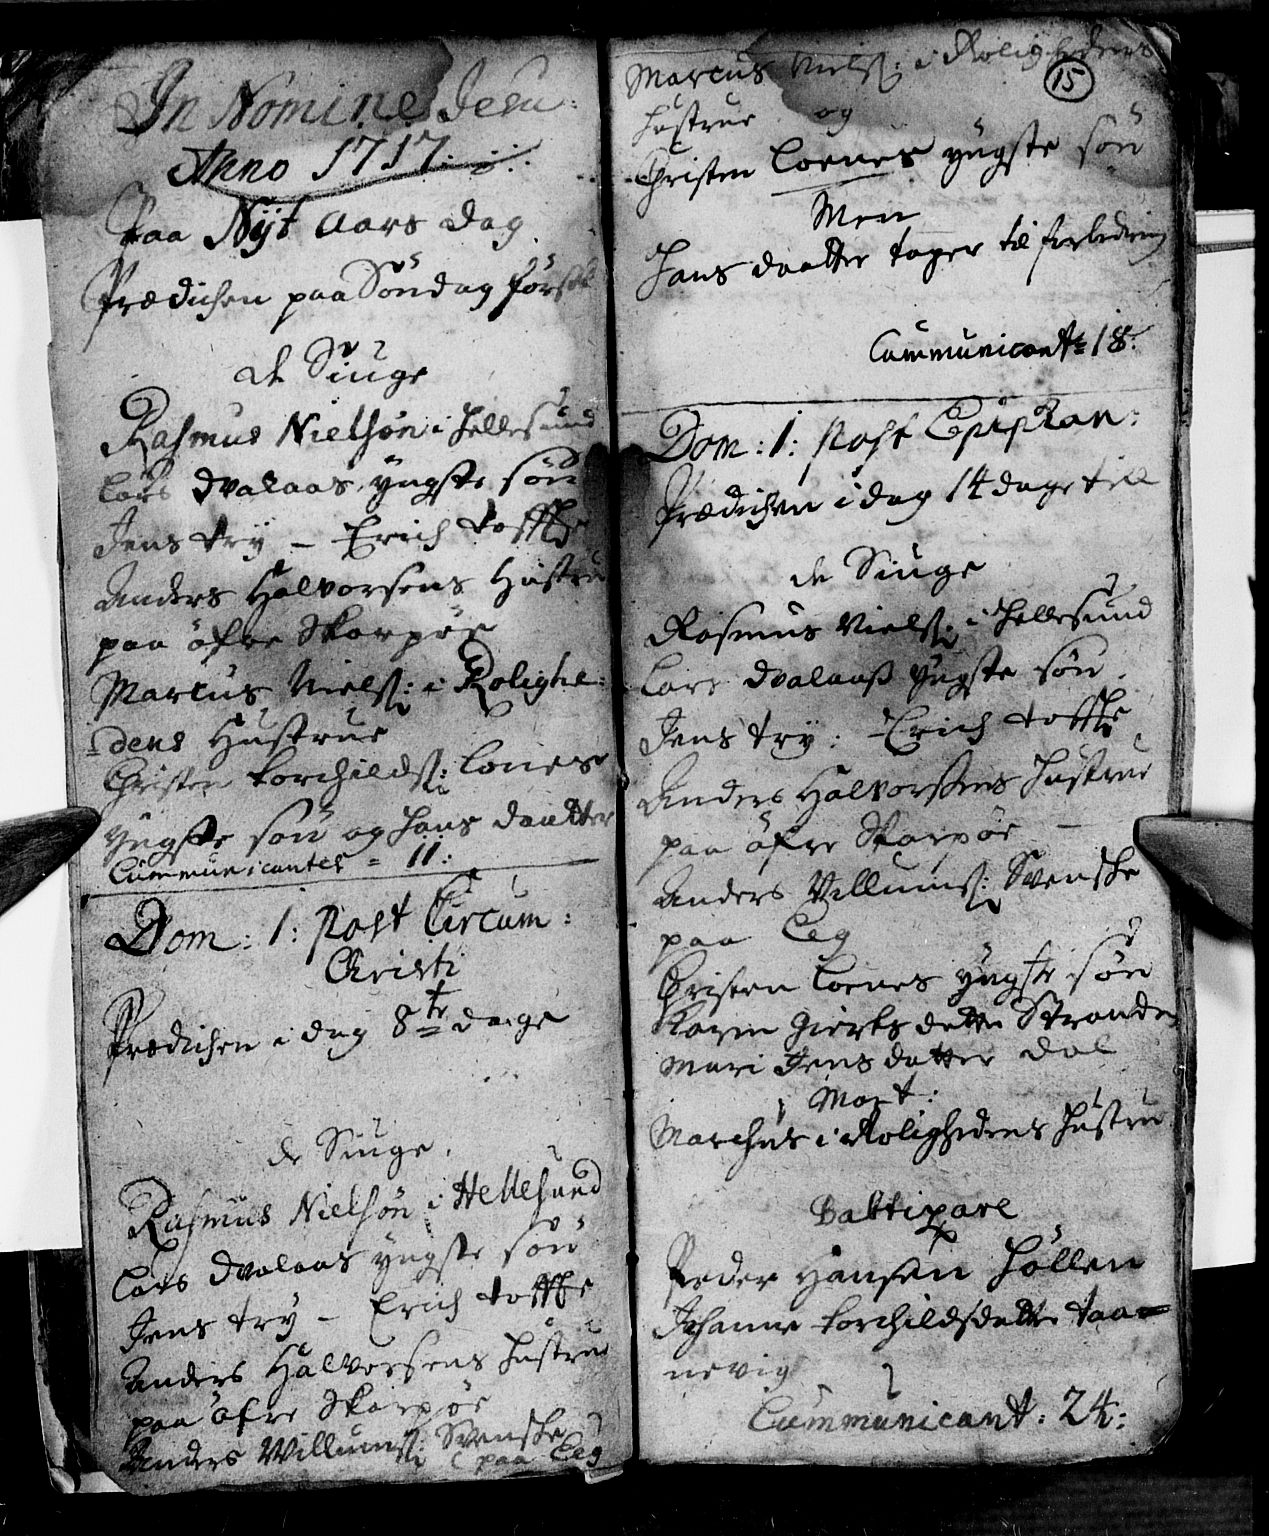 In Nomine Jesu:
Anno 1717.
Paa Nÿt Aars Dag
Prædichen paa Söndag först
de Siuge
Rasmus Nielsøn i Hellesund
Lars Dvalaas yngste søn
Jens Try – Erich Toffte
Anders Halvorsens Hustru
paa öfre Skarpøe
Marcus Nielss: i Rolighe:
dens Hustrue
Christen Torchildss: Lones
yngste søn og Hans Daatter
Communicanter = 11:
Dom: 1: Post Circum:
Christi
Prædichen i dag 8te dage
de Siuge.
Rasmus Nielsøn i Hellesund
Lars Dvalaas yngste søn
Jens Try – Erich Toffte
Anders Halvorsens Hustrue
paa öfre Skarpøe
Anders Willumss: Svenske
paa Eeg
15
Marcus Nielss: i Rolighedens
Hustrue og
Christen Loenes yngste søn
Men
Hans Daatter tager til forbedring
Communicant: 18:
Dom: 1: Post Epiphan:
Prædichen i dag 14 dage till
de Siuge
Rasmus Nielss: i Hellesund
Lars Dvalaass yngste søn
Jens Try: – Erich Toffte
Anders Halvorsens Hustrue
paa öfre Skarpøe –
Anders Villumss: Svenske
paa Eeg
Christen Loenes yngste søn
Karen Giertsdatter Strande
Mari Jensdatter Dal
Mort:
Marchus i Rolighedens Hustru
Battizare
Peder Hansen Höllen
Johanne Torchildsdatter Taa=
nevig
Communicant: 24: